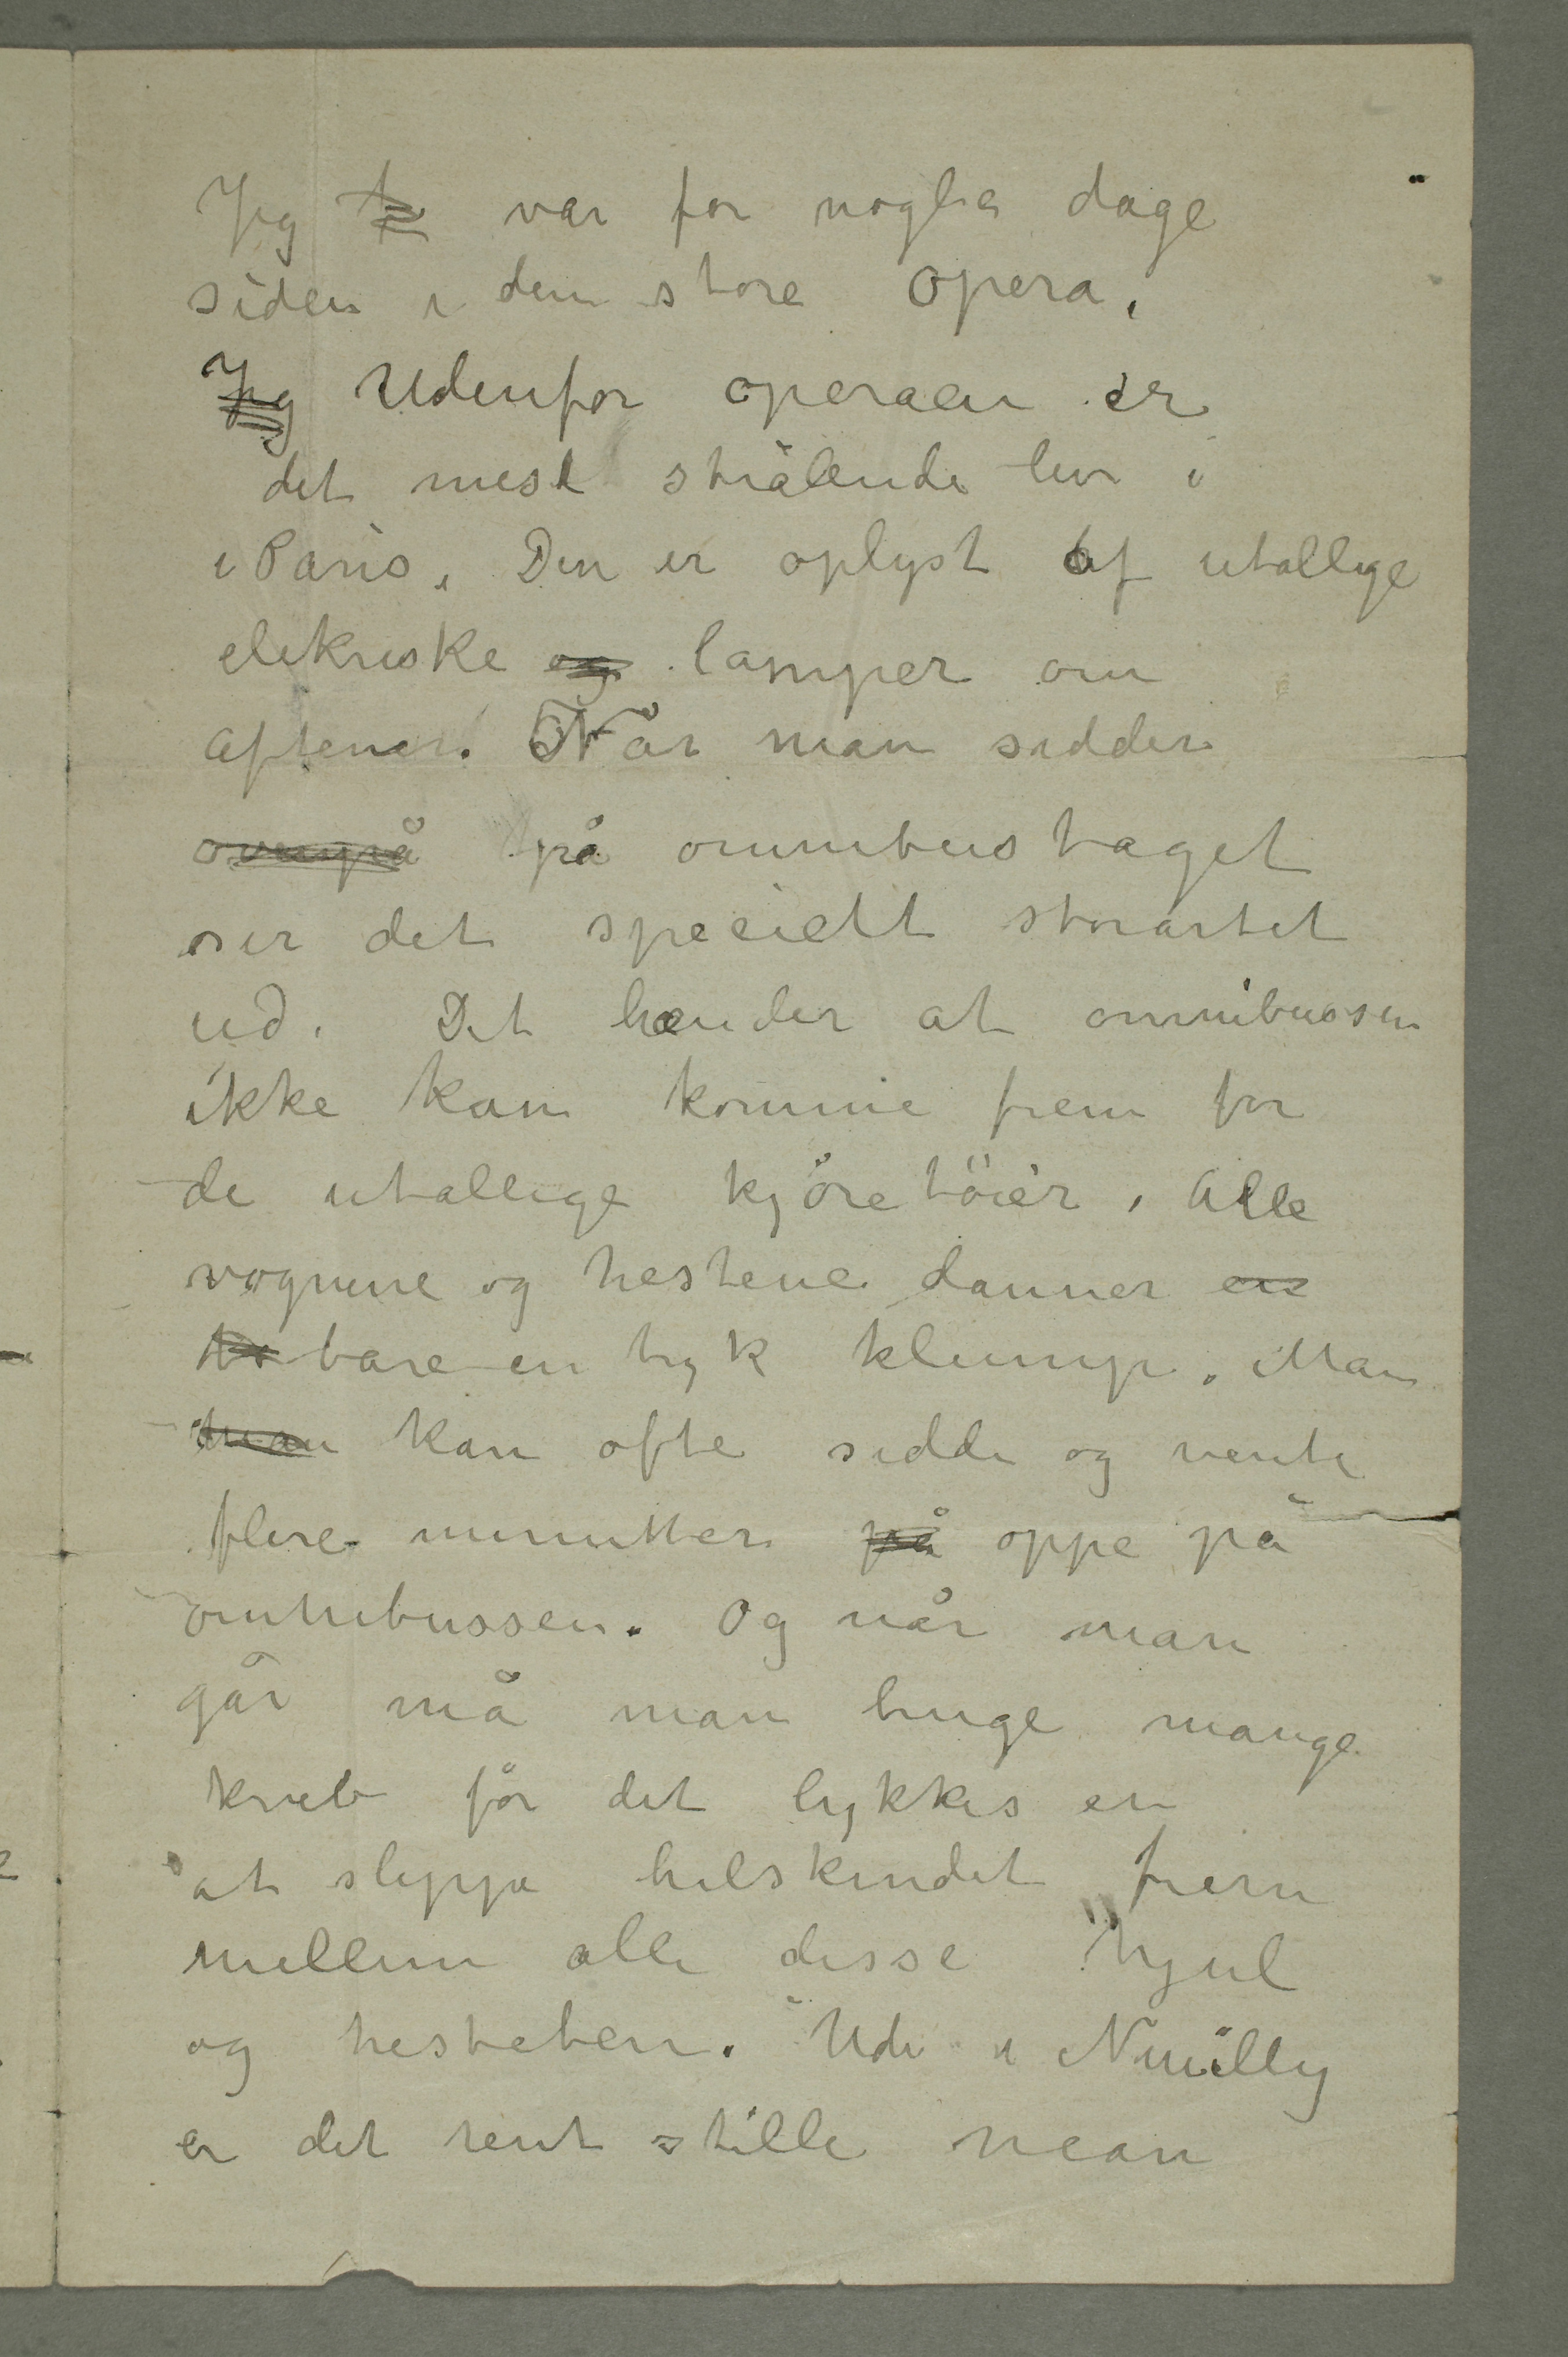 Jeg var for nogle dage
siden i den store opera.
Jeg Udenfor operaen er
det mest strålende liv i
i Paris. Den er oplyst af utallige
elekriske og lamper om
aftenen. Når man sidder
ovenpå på omnibustaget
ser det specielt storartet
ud. Det hænder at omnibussen
ikke kan komme frem for
de utallige kjöretöier. Alle
vognene og hestene danner en
bare en tyk klump. Man
man kan ofte sidde og vente
flere minutter på oppe på
omnibussen. Og når man
går må man bruge mange
kneb för det lykkes en
at slippe helskindet frem
mellem alle disse hjul
og hesteben. Ude i Neuilly
er det rent stille man